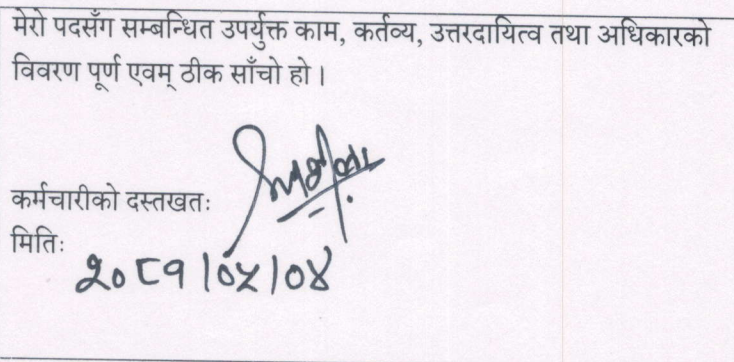 मेरो पदसँग सम्बन्धित उपर्युक्त काम, कर्तव्य, उत्तरदायित्व तथा अधिकारको
विवरण पूर्ण एवम् ठीक साँचो हो।
कर्मचारीको दस्तखतः
मितिः
२०८१।०५।०४